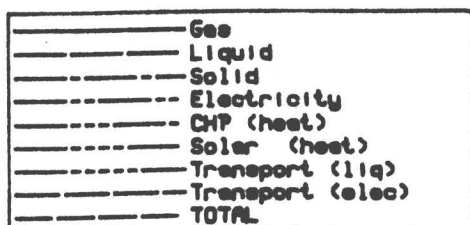 Gas
Liquid
Solid
Electricity
CHP (heat)
Solar (heat)
Transport (liq)
Transport (elec)
TOTAL